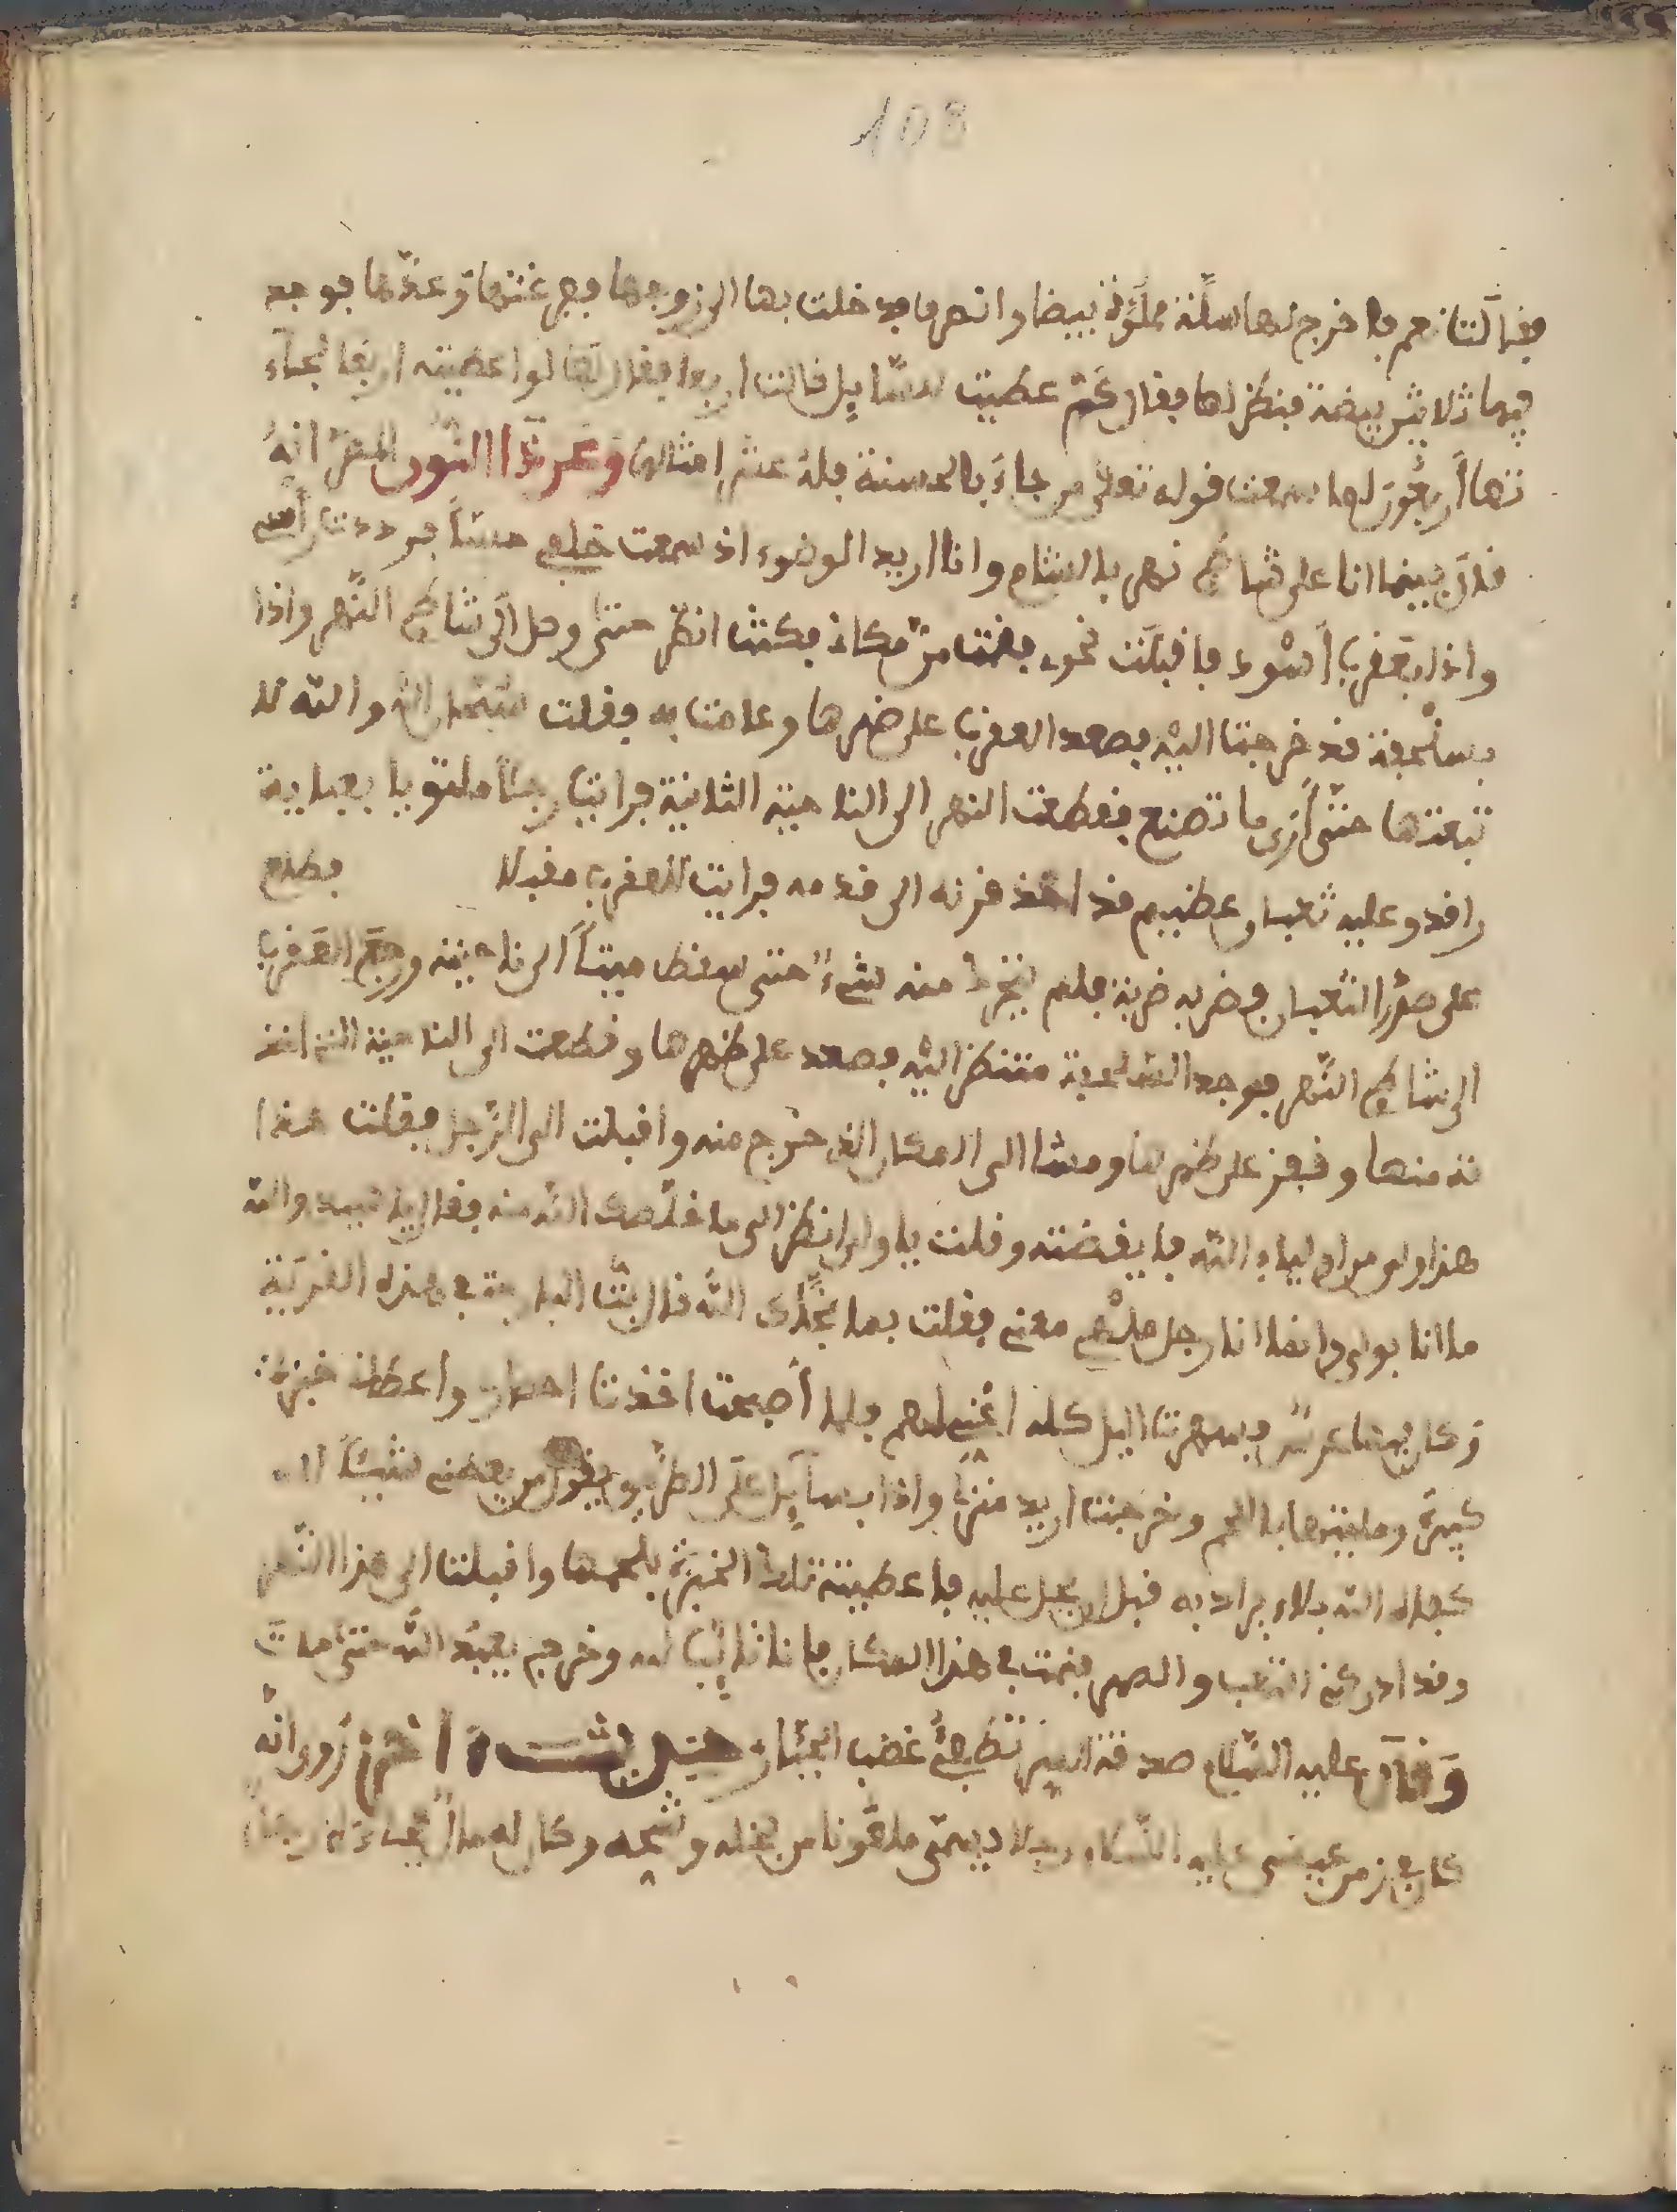 108
فقالت نعم فاخرج لها سلة مملؤة بيضا وانصرف فدخلت بها الى زوجها ففرغتها وعدها فوجد
فيها ثلاثين بيضة فنظر لها فقال كم عطيت للسايل فالت اربعا فقال لها لو اعطيته اربعا لجاء
تنا أربعون اما سمعت قوله تعلى من جاء بالحسنة فله عشر امثالها وعن ذا النون المصرى انه
قال بينما انا على شاطئ نهر بالشام وانا اريد الوضوء اذ سمعت خلفى حسا فرددت رأسى
واذا بعقرب أسود فاقبلت نحوه فقمت من مكانى فكنت انظر حتى وصل الى شاطئ النهر واذا
بسلحفة قد خرجت اليه فصعد العقرب على ضهرها وعامت به فقلت سبحان الله والله لا
تبعتها حتى أرى ما تصنع فقطعت النهر الى الناحية الثانية فرايت رجلا ملتويا بعباية
راقد وعليه ثعبان عظيم قد اخذ قرنه الى قدمه فرايت العقرب مقبلا فطلع
على صدر الثعبان فضربه ضربة فلم يتحرك منه شىء حتى سقط ميتا الى ناحيته ورجع العقرب
الى شاطئ النهر فوجد السلحفة منتظر اليه فصعد على ظهرها وقطعت الى الناحية التى اخذ
ته منها وقفز على ظهرها ومشا الى المكان الذى خرج منه واقبلت الى الرجل فقلت هذا
هذا ولى من اولياء الله فايقضته وقلت يا ولى انظر الى ما خلصك الله منه فقال يا سيدى والله
ما انا بولى وانما انا رجل ملهى مغنى فقلت بما نجاك الله قال بت البارحة فى هذه القرية
وكان بها عرس فسهرت اليل كله اغنى لهم فلما أصبحت اخذت احسان واعطانى خبزة
كبيرة وملينها بالحم وخرجت اريد منزلى واذا بسايل على الطريق يقول من يعطنى شيئا لله
كفاه الله بلاء يراد به قبل ان يحل عليه فاعطيته تلك الخبزة بلحمها واقبلت الى هذا النهر
وقد ادركنى التعب والصهر فنمت فى هذا المكان فانا تايب لله وخرجم يعبد الله حتى مات
وقال عليه السلام صدقة السر تطفئ غضب الجبار حديث اخر روى انه
كان فى زمن عيسى عليه السلام رجلا يسمى ملعونا من بخله وشحه وكان له مال فجاءه